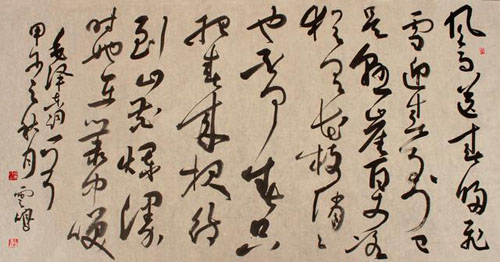 风雨送春归飞
雪迎春到已
是悬崖百丈冰
犹有花枝俏〻
也不争春只
把春来报待
到山花烂漫
时她在丛中笑
毛泽东词一首
甲午之秋月